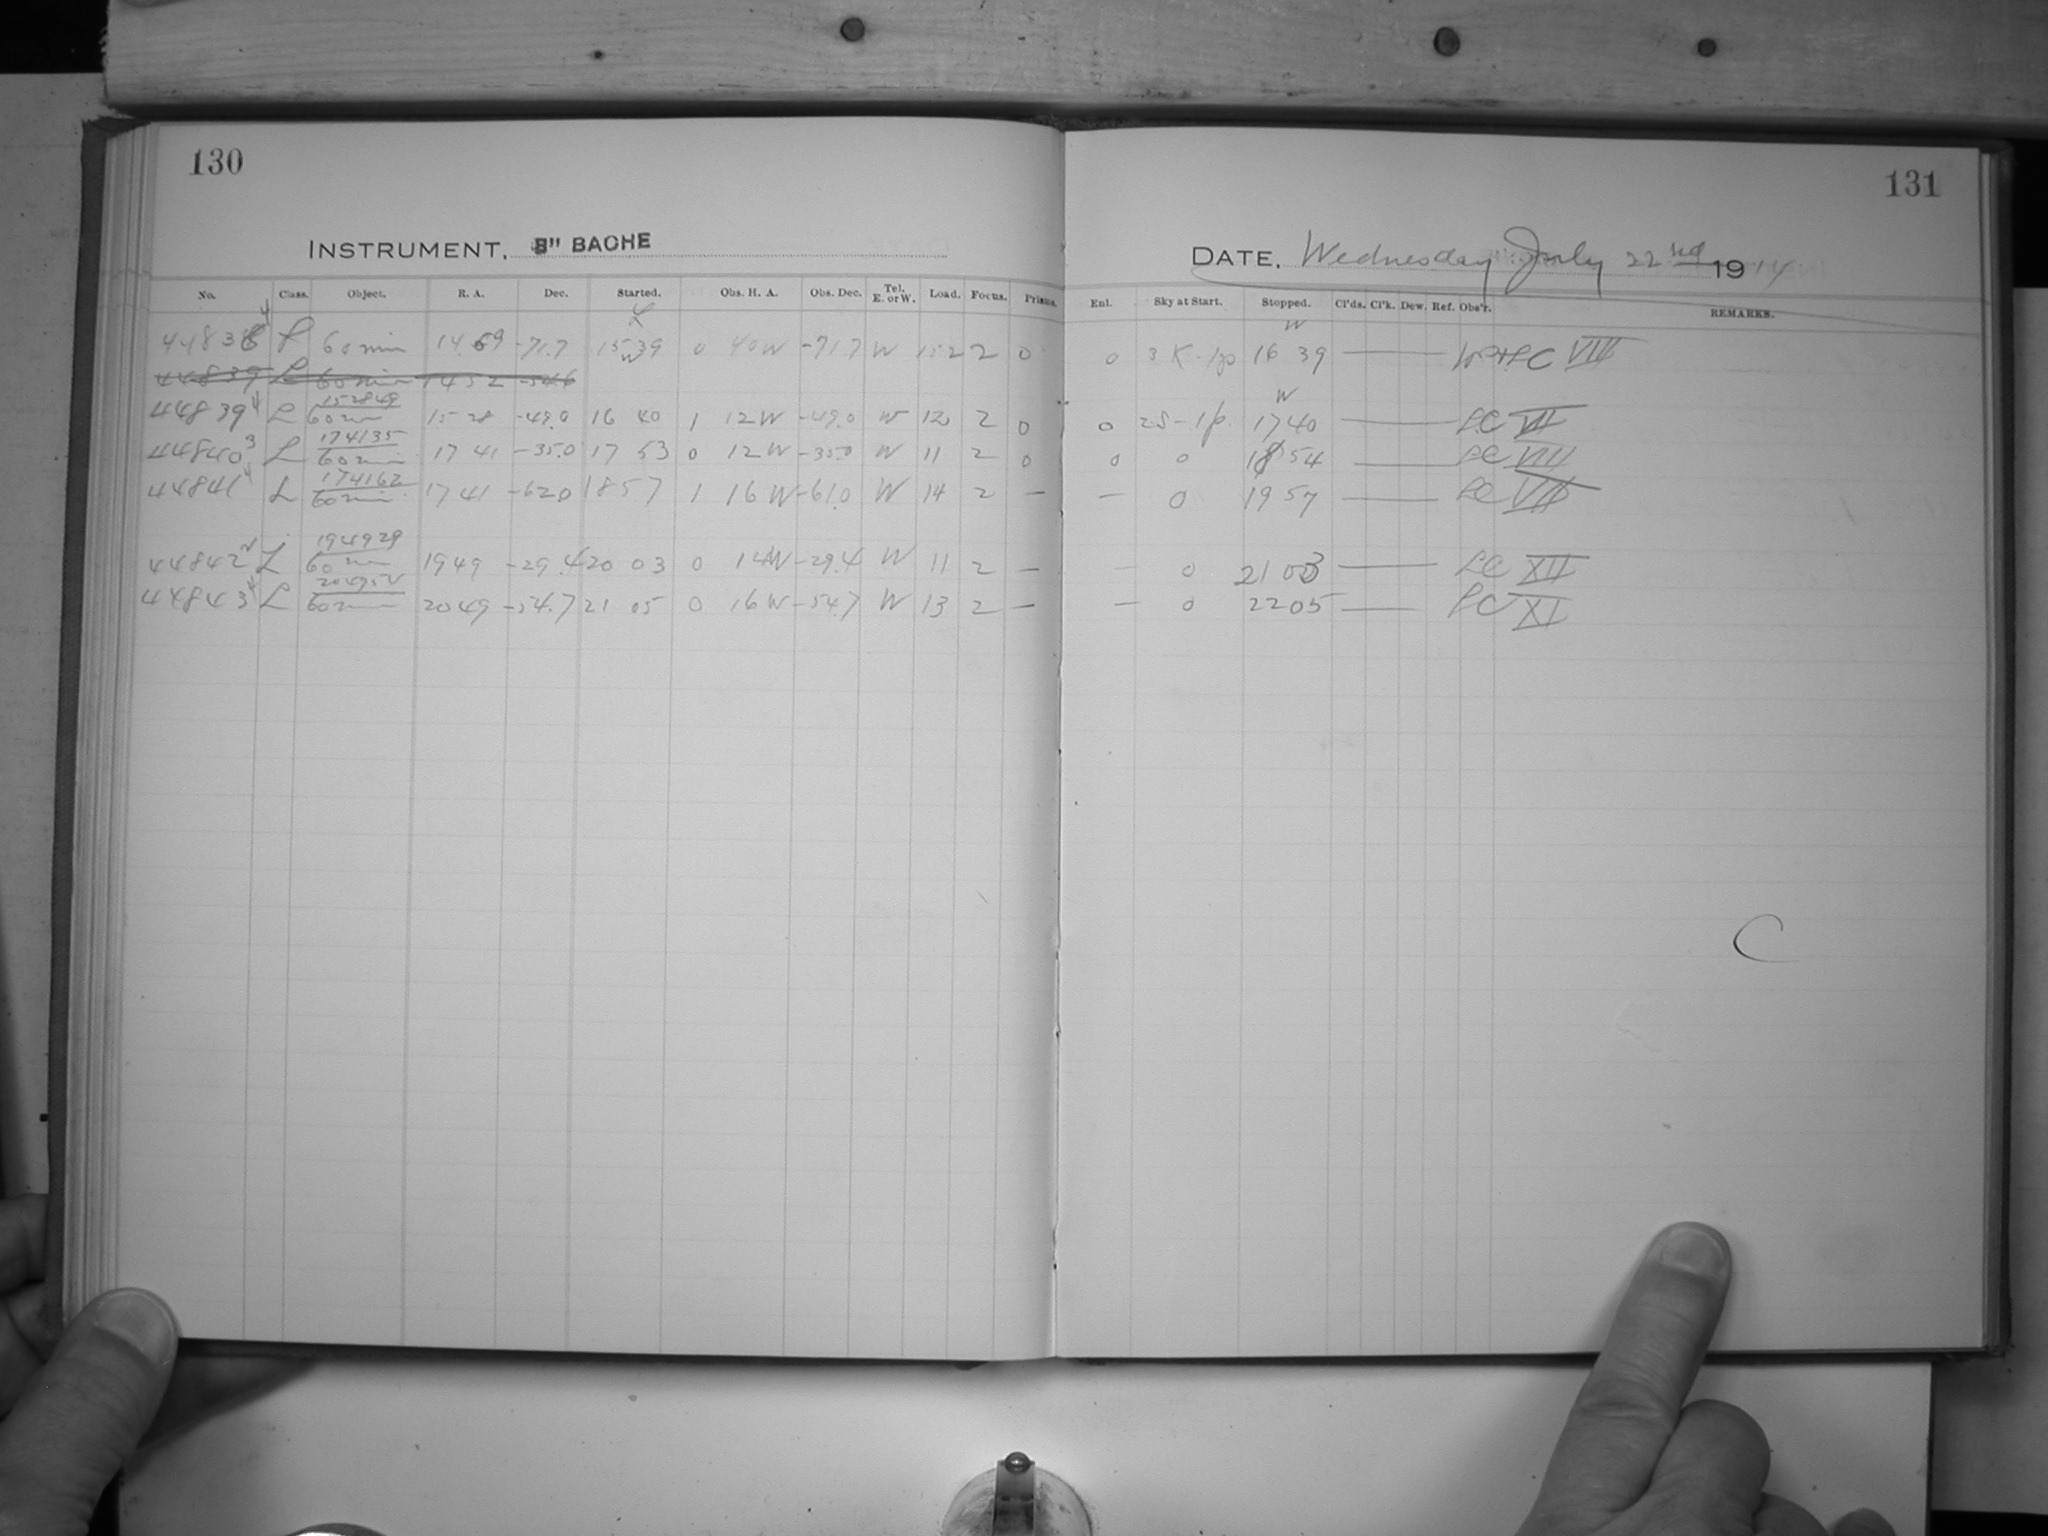 130
131
INSTRUMENT, 8" BACHE
DATE, Wednesday July 22nd 1914
No. Class. Object. R. A. Dec. Started. Obs. H. A. Obs. Dec. Tel. E. or W. Load. Focus. Prisms. Enl. Sky at Start. Stopped. Cl'ds. Cl'k. Dew. Ref. Obs'r. REMARKS.
W
44838 4 L 60 min 14 59 -71.7 15 39 0 40 W -71.7 W 152 2 0 0 16 39 VIII
W
44839 L 60 min 1452 -54.6
152849
W
44839 4 L 60 m 15 28 -49.0 16 40 1 12 W -49.0 W 120 2 0 0 2S-1p. 1740 LC VII
174135
44840 3 L 60 min 17 41 -35.0 17 53 0 12 W -35.0 W 11 2 0 0 0 18 54 LC VIII
174162
44841 4 L 60 min 17 41 -62.0 18 57 1 16 W -61.0 W 14 2 — — 0 19 57 LC VIII
194929
44842 L 60 m 1949 -29.4 20 03 0 14 W -29.4 W 11 2 — — 0 21 03 LC XII
44843 4 L 60 min 2049 -54.7 21 05 0 16 W -54.7 W 13 2 — — 0 2205 LC XI
C